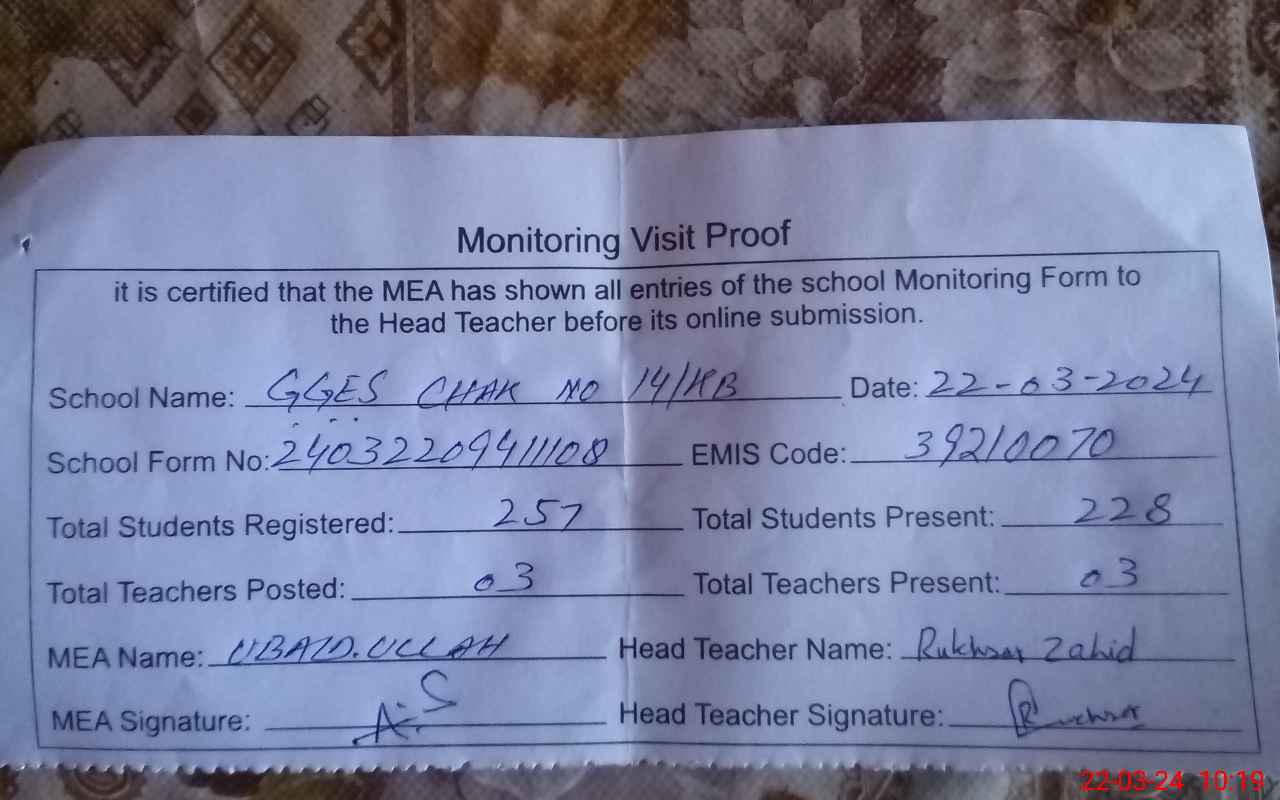 Monitoring Visit Proof
it is certified that the MEA has shown all entries of the school Monitoring Form to
the Head Teacher before its online submission.
School Name: GGES CHAK NO 14/KB Date: 22-03-2024
School Form No: 24032209411108 EMIS Code: 39210070
Total Students Registered: 257 Total Students Present: 228
Total Teachers Posted: 03 Total Teachers Present: 03
MEA Name: UBAID.ULLAH Head Teacher Name: Rukhsar Zahid
MEA Signature: A.S Head Teacher Signature: Rukhsar
22-03-24 10:19